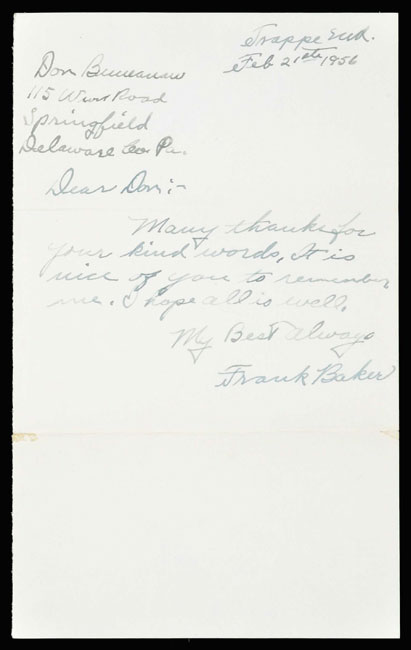 Trappe Md.
Feb 21st 1956
Don
115 Road
Springfield
Delaware Co. Pa.
Dear Don:-
Many thanks for
your kind words, It is
nice of you to remember
me. I hope all is well.
My Best always
Frank Baker